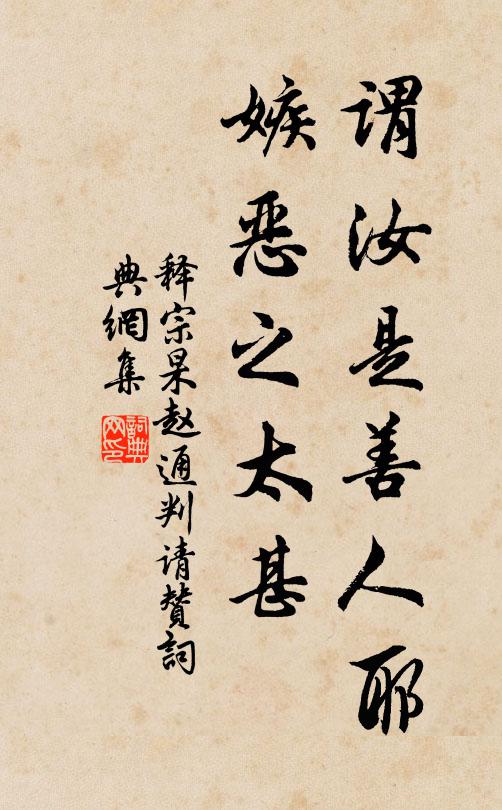 谓汝是善人耶
嫉恶之太甚
释宗杲赵通判请赞詞
典網集
詞典
网印